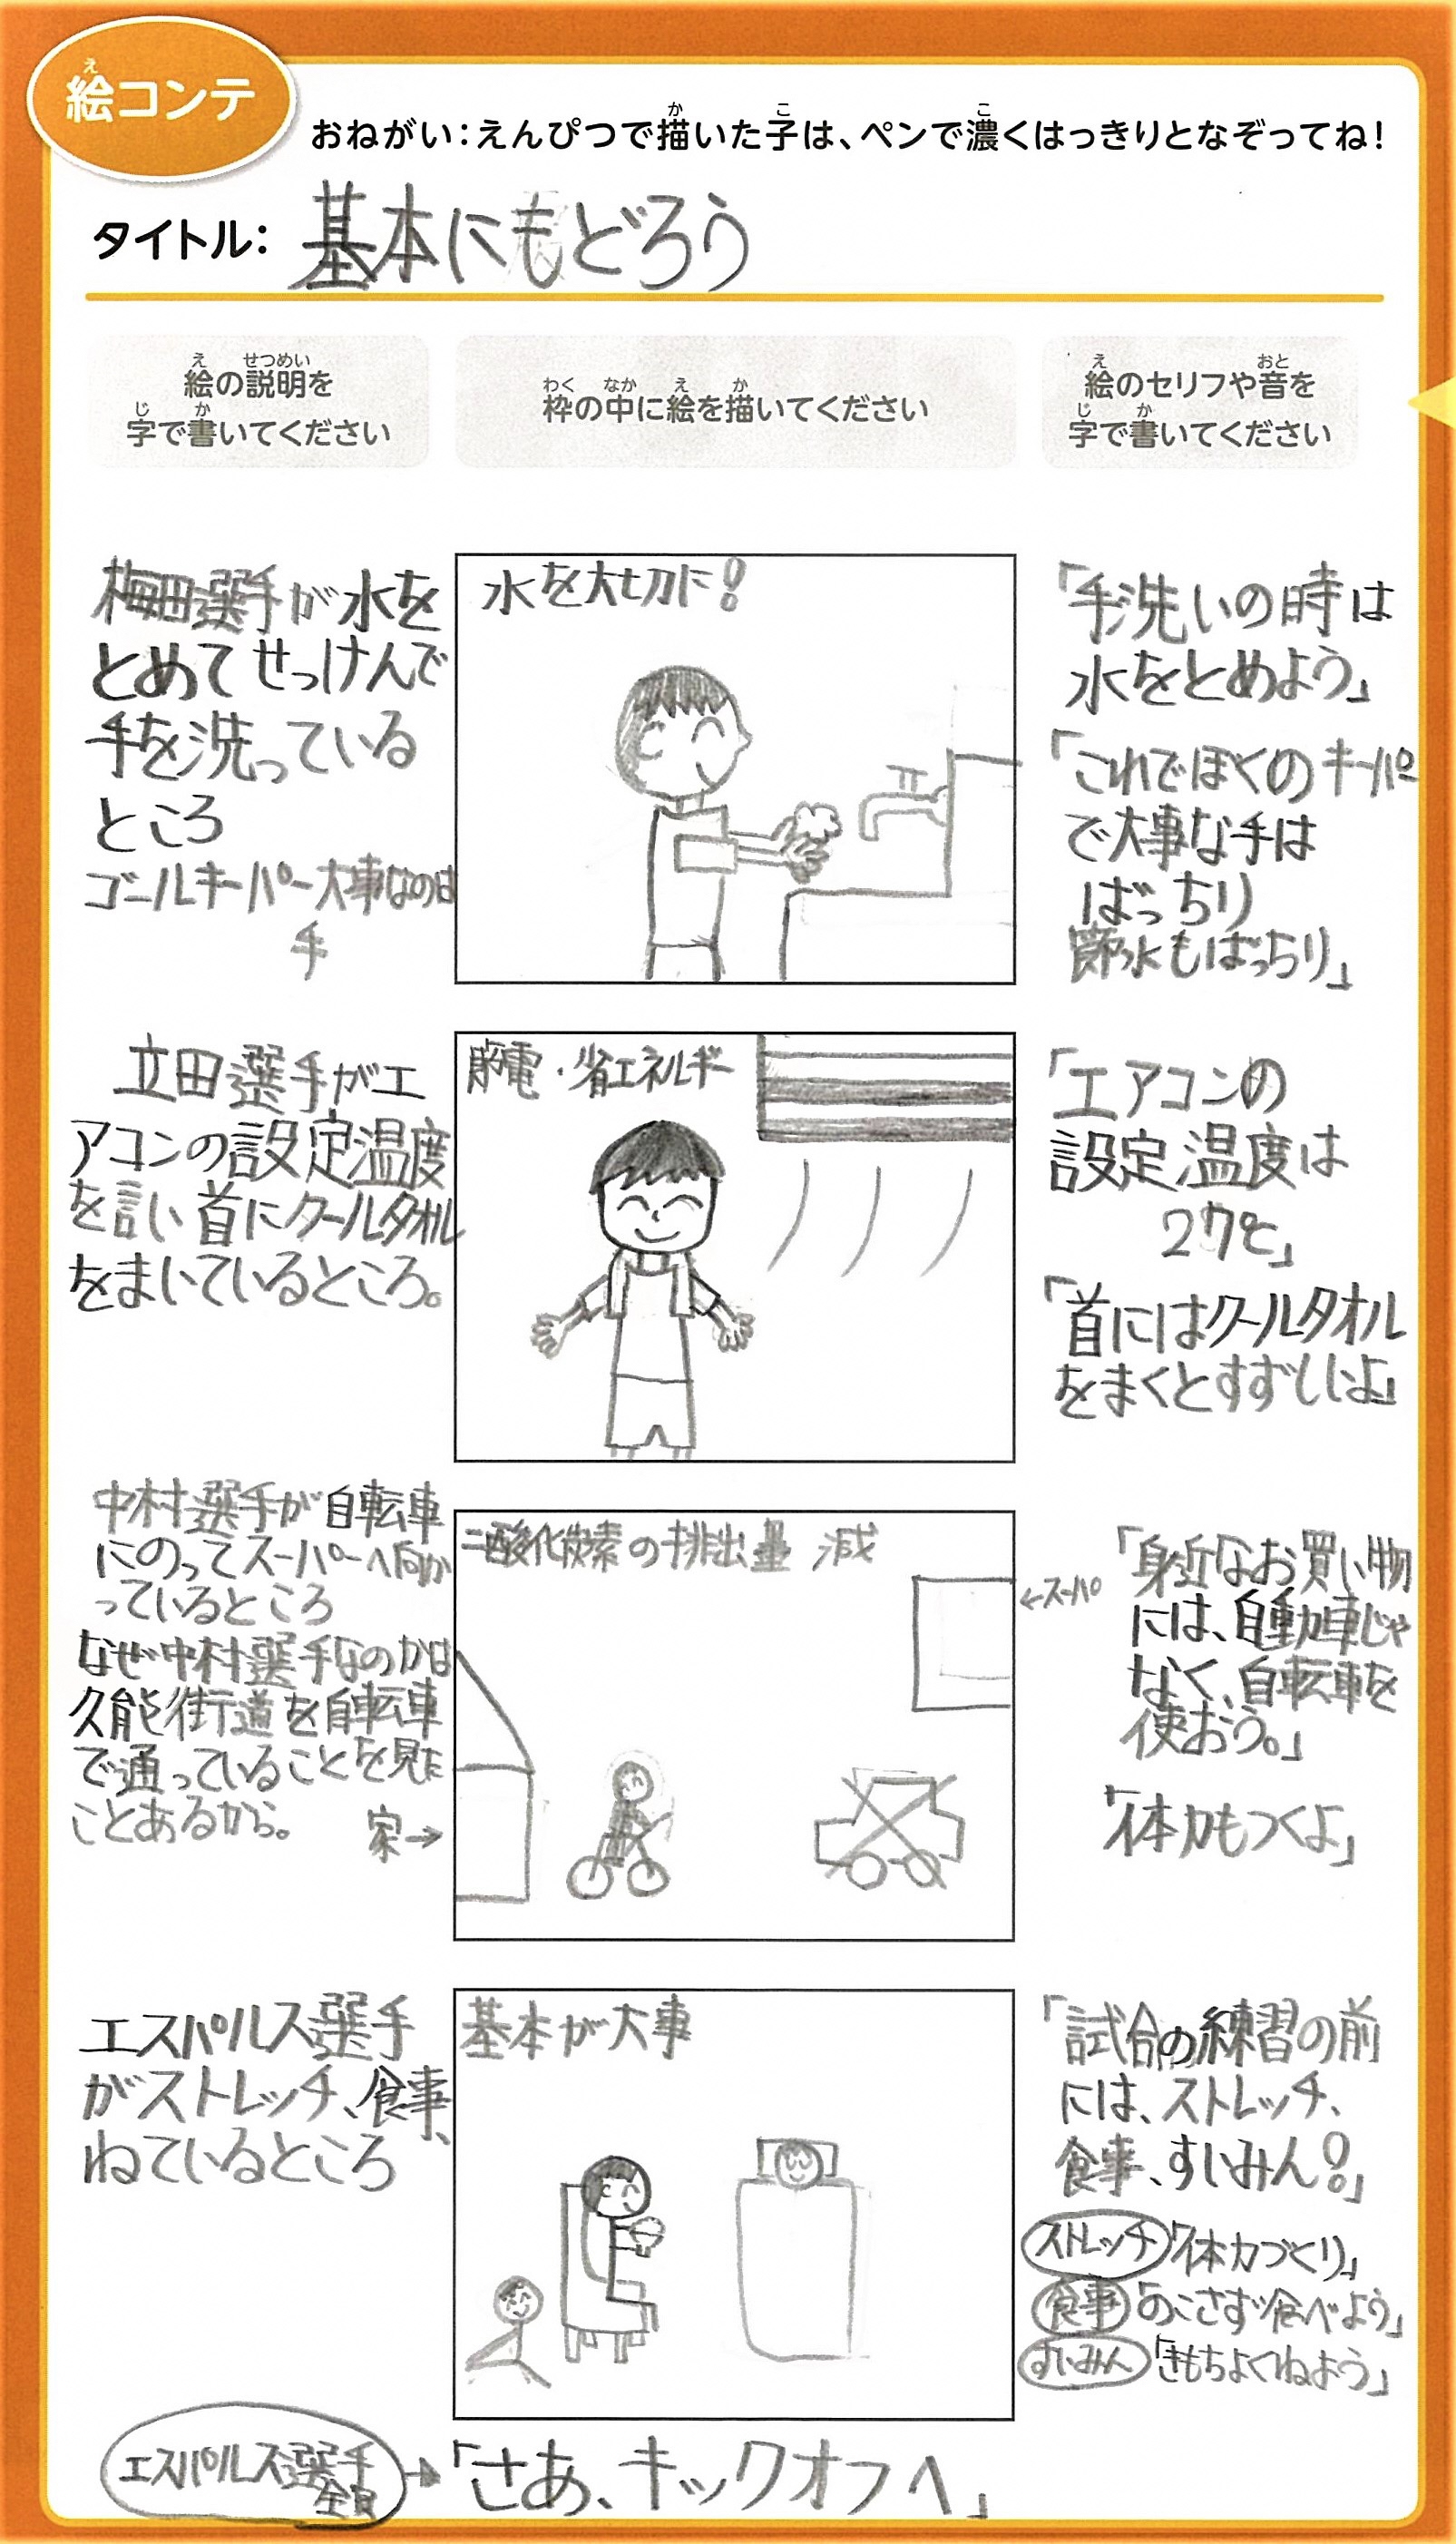 絵コンテ
おねがい：えんぴつで描いた子は、ペンで濃くはっきりとなぞってね！
タイトル： 基本にもどろう
絵の説明を
字で書いてください
枠の中に絵を描いてください
絵のセリフや音を
字で書いてください
梅田選手が水を
とめてせっけんで
手を洗っている
ところ
ゴールキーパー大事なのは
手
水を大切に！
「手洗いの時は
水をとめよう」
「これでぼくのキーパ
で大事な手は
ばっちり
節水もばっちり」
立田選手がエ
アコンの設定温度
を言い首にクールタオル
をまいているところ。
節電・省エネルギー
「エアコンの
設定温度は
27℃」
「首にはクールタオル
をまくとすずしいよ」
中村選手が自転車
にのってスーパーへ向か
っているところ
なぜ中村選手なのかは
久能街道を自転車
で通っていることを見た
ことあるから。
家→
二酸化炭素の排出量 減
←スーパ
「身近なお買い物
には、自動車じゃ
なく、自転車を
使おう。」
「体力もつくよ」
エスパルス選手
がストレッチ、食事、
ねているところ
基本が大事
「試合の練習の前
には、ストレッチ、
食事、すいみん！」
ストレッチ「体力づくり」
食事「のこさず食べよう」
すいみん「きもちよくねよう」
エスパルス選手
全員
→「さあ、キックオフへ」